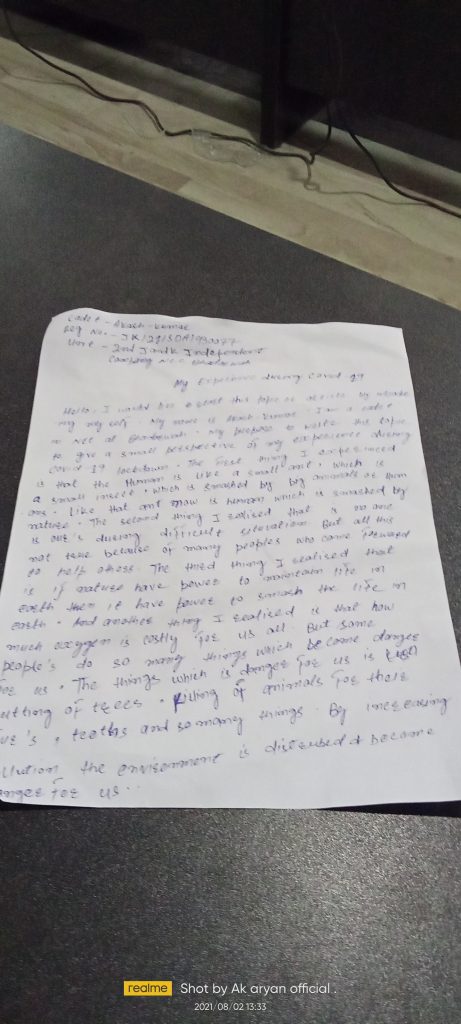 Cadet - Akash Kumar
Reg No. - JK/21/SDA/930077
Unit - 2nd Jandk Independent
Company N.C.C
My Experience during Covid 19
Hello. I want this topic or by
my my self. My name is Akash Kumar. I am a cadet
in NCC at. My purpose to write this topic
to give a small perspective of my experience during
Covid 19 lockdown. The first thing I experienced
is that the Human is like a small ant. which is
a small insect. which is smashed by big animals or Hum
ans. Like that ant now is human which is smashed by
nature. The second thing I realised that is no one
is our's during difficult situation. But all this
not true because of many peoples who came forward
to help others. The third thing I realised that
is if nature have power to maintain life in
earth then it have power to smash the life in
earth. And another thing I realised is that how
much oxygen is costly for us all. But some
people's do so many things which become danger
for us. The things which is danger for us is
utting of trees. Killing of animals for there
ur's, teeths and so many things. By increasing
llution the environment is disturbed & become
anger for us..
realme Shot by Ak aryan official .
2021/08/02 13:33